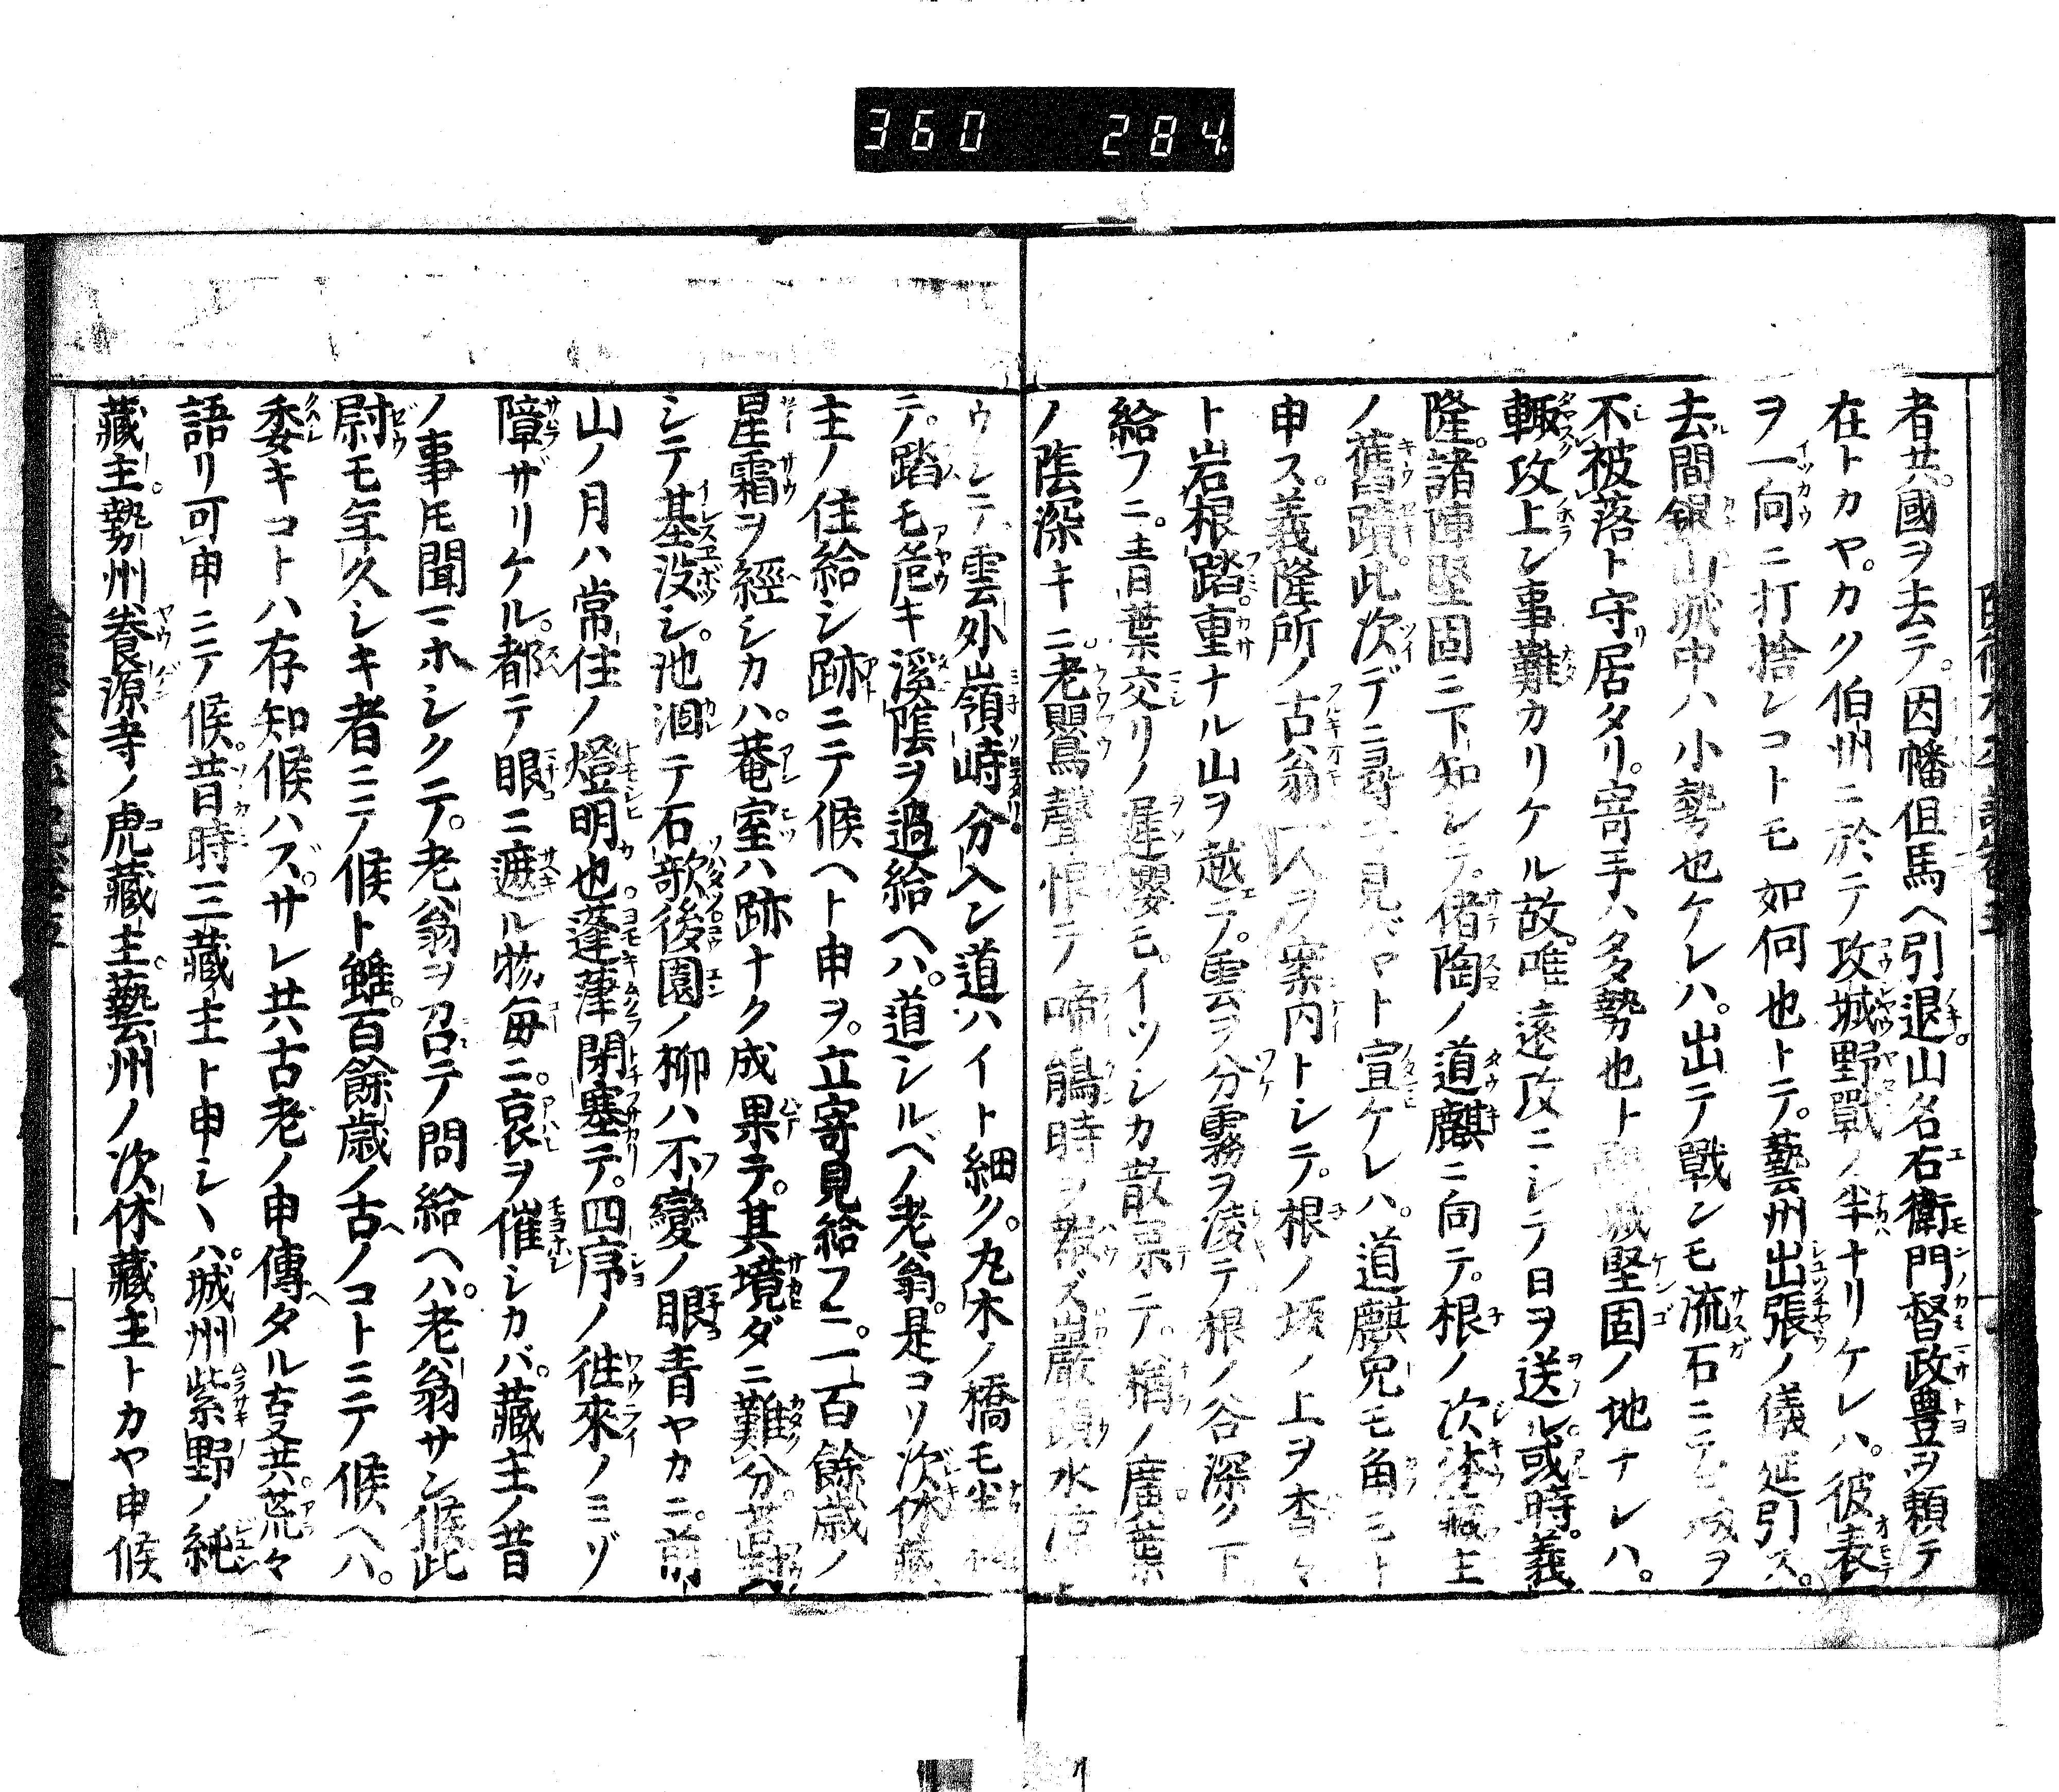 360 284
者共。國ヲ去テ。因幡但馬ヘ引退。山名右衛門督政豊ヲ頼テ
在トカヤ。カク伯州ニ於テ攻城野戰ノ半ナリケレハ。彼表
ヲ一向ニ打捨ンコトモ如何也トテ。藝州出張ノ儀延引ス。
去間銀山城中ハ小勢也ケレハ。出テ戰ンモ流石ニテ城ヲ
不被落ト守居タリ。寄手ハ多勢也ト城堅固ノ地ナレハ。
輙攻上シ事難カリケル故。唯遠攻ニシテ日ヲ送ル。或時。義
隆。諸陣堅固ニ下知シテ。偖陶ノ道麒ニ向テ。根ノ次休藏主
ノ舊蹟。此次デニ尋子見バヤト宣ケレハ。道麒兒モ角モト
申ス。義隆所ノ古翁一人ヲ案内トシテ。根ノ坂ノ上ヲ杳々
ト岩根踏。重ナル山ヲ越テ。雲ヲ分霧ヲ凌テ根ノ谷深ク下
給フニ。青葉交リノ遅櫻モ。イツシカ散果テ。楢ノ廣葉
ノ蔭深キニ。老鸎聲 テ啼鵑時ヲ 巖頭水
ウシテ雲外嶺峙。分入ン道ハイト細ク。丸木ノ橋モ
テ。踏モ危キ溪蔭ヲ過給ヘハ。道シルベノ老翁。是コソ次休藏
主ノ住給シ跡ニテ候ヘト申ヲ。立寄見給フニ。一百餘歳ノ
星霜ヲ經シカハ。菴室ハ跡ナク成果テ。其境ダニ難分。苔
シテ基没シ。池涸テ石欹。後園ノ柳ハ不變ノ眼青ヤカニ。前
山ノ月ハ常住ノ燈明也。蓬葎閉塞テ。四序ノ徃來ノミゾ
障ザリケル。都テ眼ニ遮ル物毎ニ。哀ヲ催シカバ。藏主ノ昔
ノ事トモ聞マホシクテ。老翁ヲ召テ問給ヘハ。老翁サン候此
尉モ年久シキ者ニテ候ト雖。百餘歳ノ古ヘノコトニテ候ヘハ。
委キコトハ存知候ハズ。サレ共古老ノ申傳ヘタル叓共。荒々
語リ可申ニテ候。昔時三藏主ト申シヽハ。城州紫野ノ純
藏主。勢州養源寺ノ虎藏主。藝州ノ次休藏主トカヤ申候